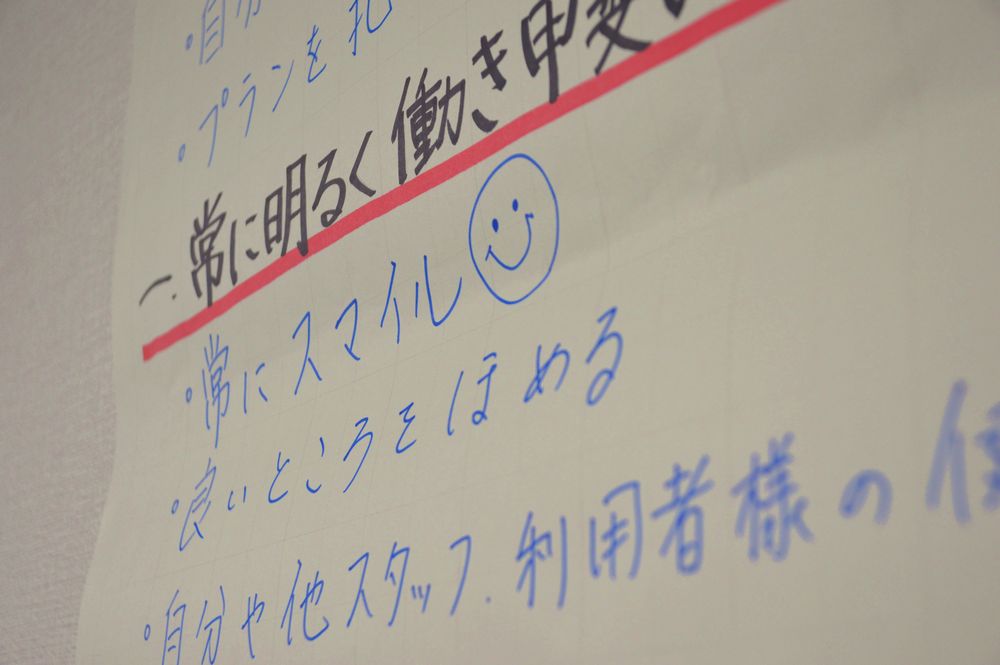 ・自分
・プランを
一.常に明るく働き甲斐
・常にスマイル
・良いところをほめる
・自分や他スタッフ.利用者様の